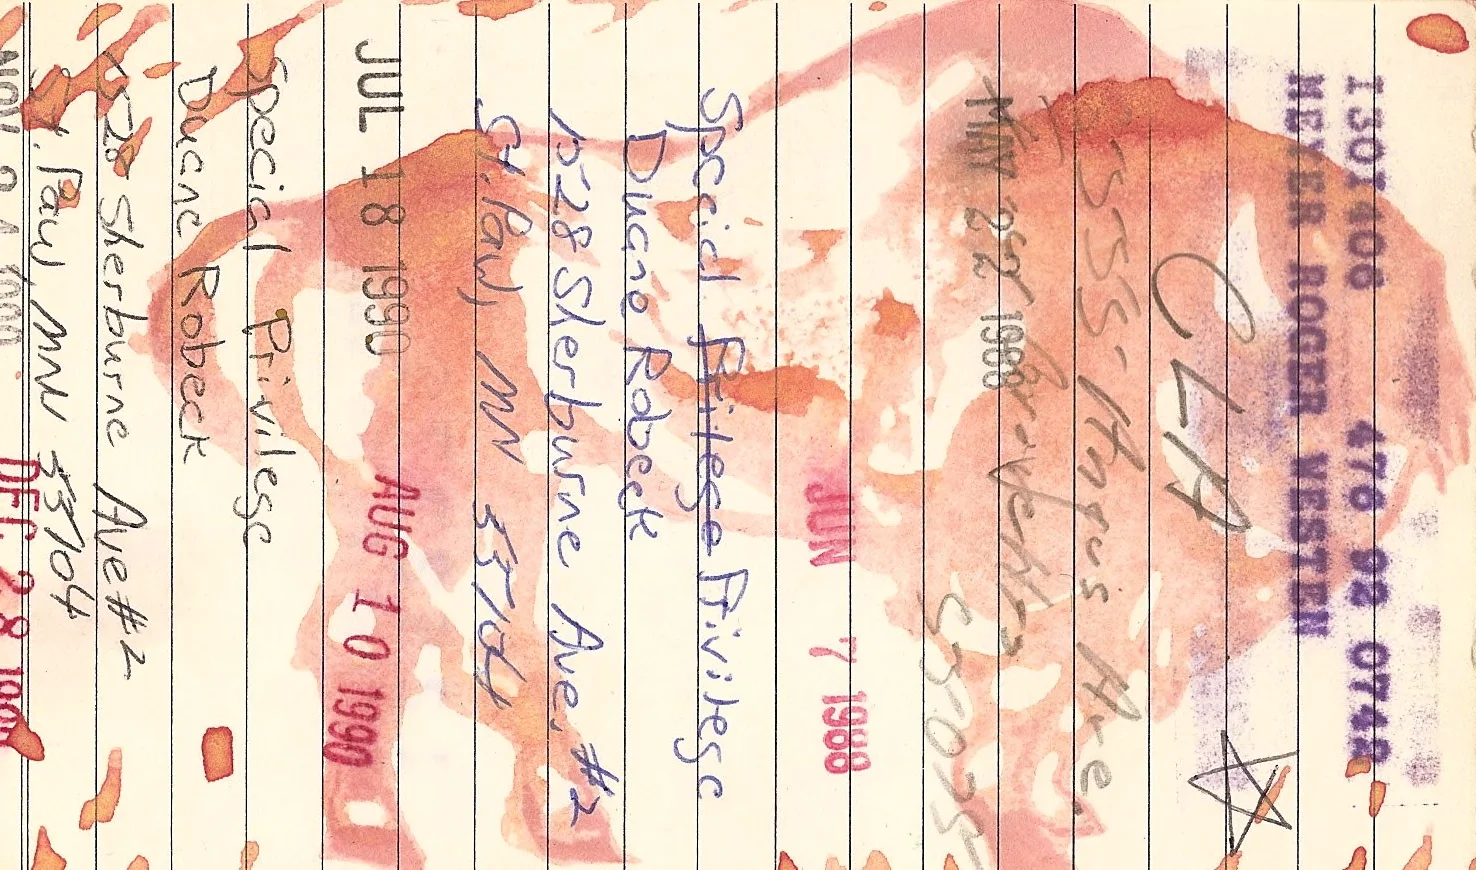 1301406 476 92 0742
MEYER ROGER WESTEN
CLA
Angus Ave
MAY 22 1988
JUN 7 1988
Special Privilege Privilege
Duane Robeck
1528 Sherburne Ave. #2
St. Paul, MN 55104
JUL 18 1990
AUG 10 1990
Special Privilege
Duane Robeck
1528 Sherburne Ave #2
St. Paul, MN 55104
DEC 28